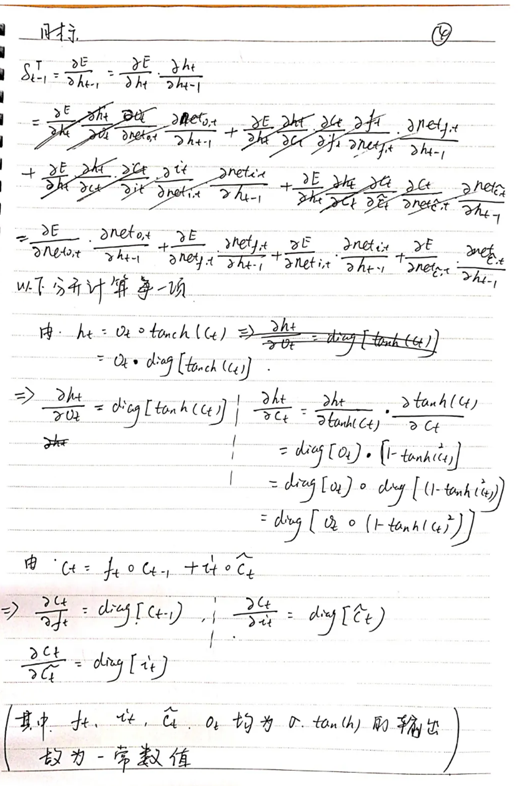 目标 ④
δ_{t-1}^T = ∂E/∂h_{t-1} = ∂E/∂h_t · ∂h_t/∂h_{t-1}
= ∂E/∂h_t ∂h_t/∂o_t ∂o_t/∂net_{o,t} ∂net_{o,t}/∂h_{t-1} + ∂E/∂h_t ∂h_t/∂c_t ∂c_t/∂f_t ∂f_t/∂net_{f,t} · ∂net_{f,t}/∂h_{t-1}
+ ∂E/∂h_t ∂h_t/∂c_t · ∂c_t/∂i_t · ∂i_t/∂net_{i,t} ∂net_{i,t}/∂h_{t-1} + ∂E/∂h_t ∂h_t/∂c_t ∂c_t/∂c̃_t · ∂c_t/∂net_{c̃,t} · ∂net_{c̃,t}/∂h_{t-1}
= ∂E/∂net_{o,t} · ∂net_{o,t}/∂h_{t-1} + ∂E/∂net_{f,t} · ∂net_{f,t}/∂h_{t-1} + ∂E/∂net_{i,t} · ∂net_{i,t}/∂h_{t-1} + ∂E/∂net_{c̃,t} · ∂net_{c̃,t}/∂h_{t-1}
以下分开计算每一项
由. h_t = o_t ∘ tanch(c_t) ⇒ ∂h_t/∂o_t = diag[tanh(c_t)]
= o_t · diag[tanch(c_t)].
⇒ ∂h_t/∂o_t = diag[tanh(c_t)] | ∂h_t/∂c_t = ∂h_t/∂tanh(c_t) · ∂tanh(c_t)/∂c_t
∂h_t
= diag[o_t] · [1-tanh²(c_t)]
= diag[o_t] ∘ diag[(1-tanh²(c_t))]
= diag[o_t ∘ (1-tanh(c_t)²)]
由 c_t = f_t ∘ c_{t-1} + i_t ∘ c̃_t
⇒ ∂c_t/∂f_t = diag[c_{t-1}), | ∂c_t/∂i_t = diag[c̃_t)
∂c_t/∂c̃_t = diag[i_t]
(其中. f_t, i_t, c̃_t, o_t 均为 σ. tan(h) 的输出
故为一常数值)